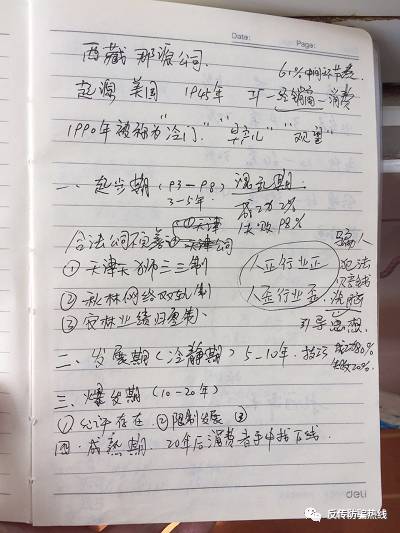 Date: Page:
西藏 那源公司.
61%中间环节费.
起源 美国 1945年 厂—经销商—消费
1990年被称为“冷门”“早产儿”“观望”
一、起步期(93-98) 混乱期
3-5年.
成功2%
失败98%
合法公司不完善
①天津
天津公司
①天津天狮三三制
②秋林网络双轨制
③农林业绩归零制、
人正行业正
人歪行业歪.
骗人
犯法
洗脑
引导思想
二、发展期(冷静期)5-10年.技巧
成功80%
失败20%.
三、爆发期(10-20年)
①允许存在 ②限制发展 ③
四.成熟期.20年后消费者手中指下线.
deli
反传防骗热线